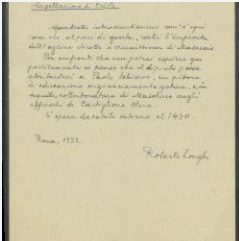 Flagellazione di Cristo
Quadretto interessantissimo com'è ogni
cosa che, al pari di questa, rechi l'impronta
dell'ingegno diretto e vicinissimo di Masaccio.
Per confronti che non potrei esporre qui
partitamente io penso che il dipinto possa
attribuirsi a Paolo Schiavo, un pittore
di educazione originariamente gotica, e in
seguito, collaboratore di Masolino negli
affreschi di Castiglione Olona.
È opera databile intorno al 1430.
Roma, 1932.
Roberto Longhi